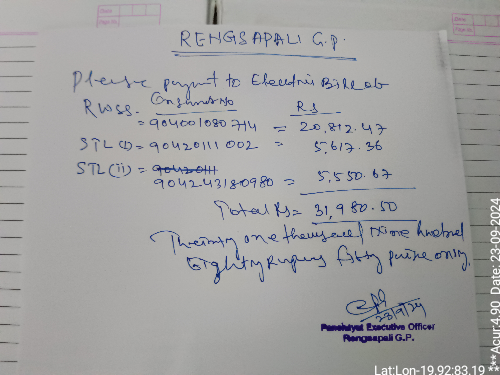 RENGSAPALI G.P.
Please payment to Electric Bill ob
Consumer No Rs
RWSS. = 904001080714 = 20,812.47
STL (i) = 90420111002 = 5,617.36
STL (ii) = 90420111
904243180980 = 5,550.67
Total Rs = 31,980.50
Thirty one thousand Nine hundred
Eighty Rupees fifty paise only.
23/9/24
Panchayat Executive Officer
Rengsapali G.P.
Lat:Lon-19.92:83.19
***Acur:4.90 Date: 23-09-2024